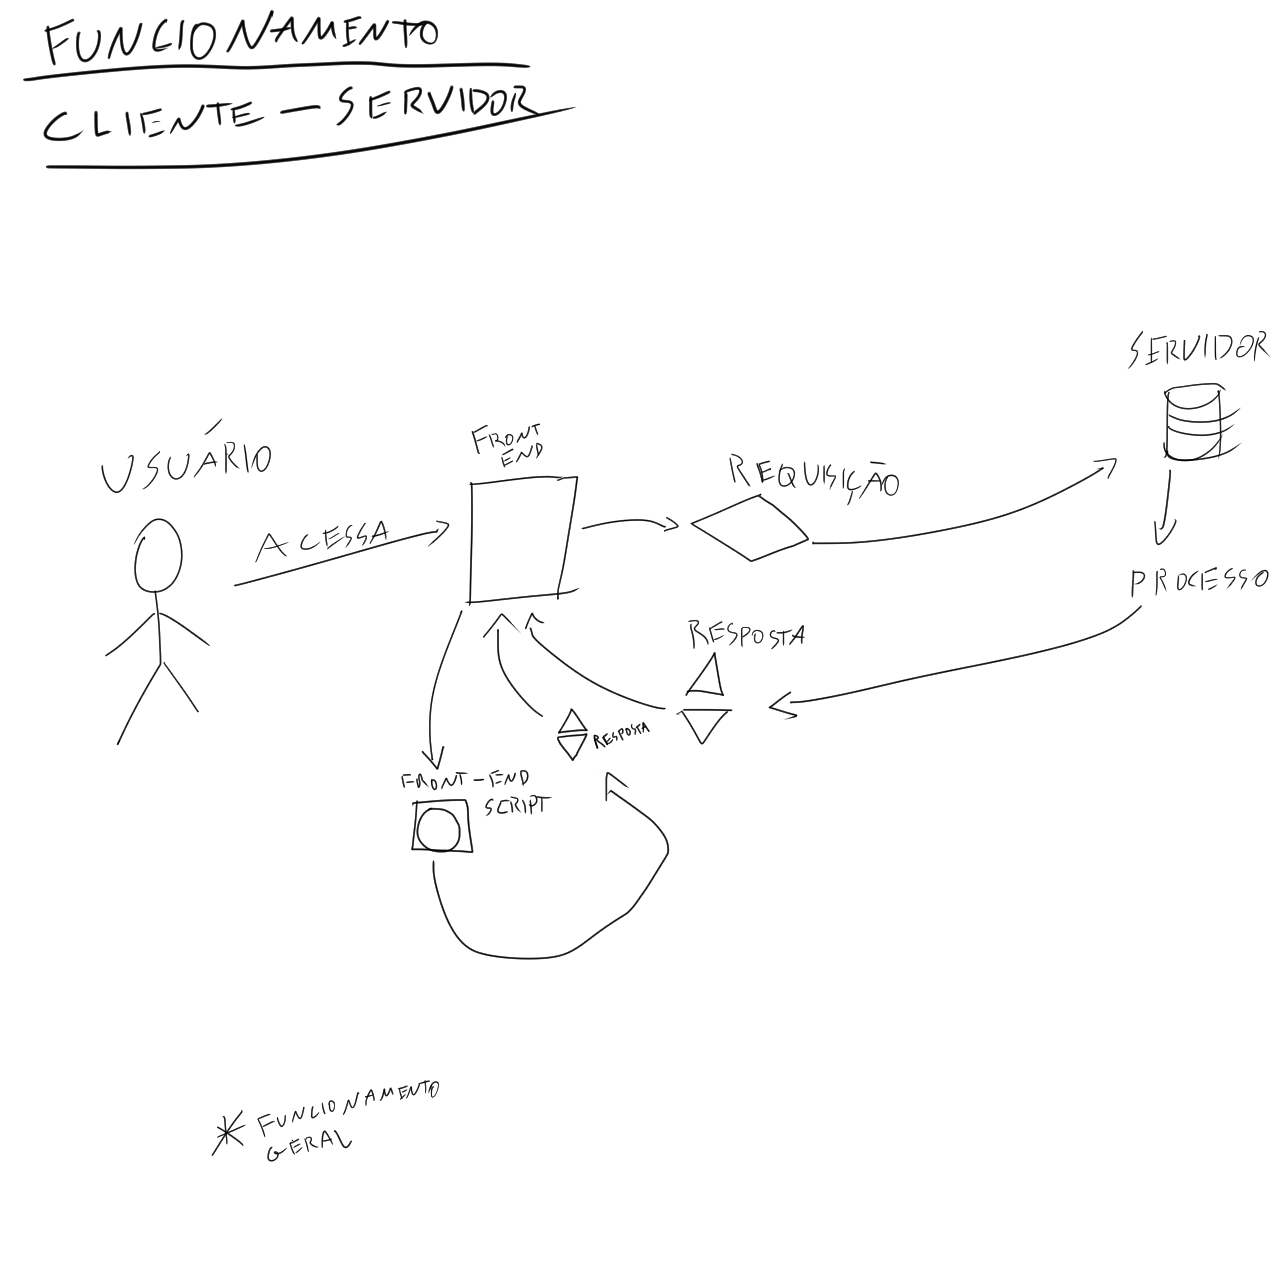 FUNCIONAMENTO
CLIENTE - SERVIDOR
SERVIDOR
USUÁRIO
FRONT
END
REQUISIÇÃO
ACESSA
PROCESSO
RESPOSTA
RESPOSTA
FRONT-END
SCRIPT
* FUNCIONAMENTO
GERAL